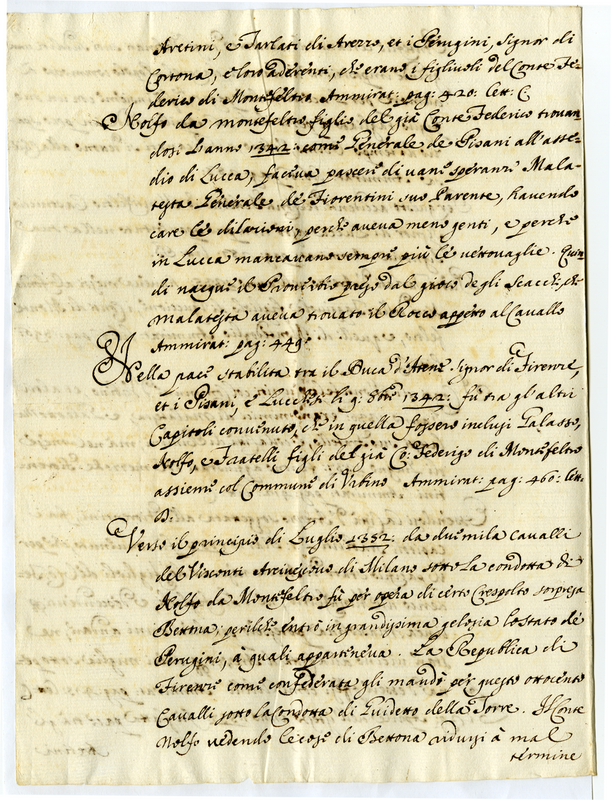 Aretini, e Tarlati di Arezzo, et i Perugini, Signor di
Cortona, e loro aderenti, che erano i figliuoli del Conte Fe-
derico di Montefeltro Ammirat: pag: 420: lett: C
Nolfo da montefeltro figlio del già Conte Federico trovan
dosi L'anno 1342: come Generale de Pisani all'asse-
dio di Lucca, faceva pascere di vane speranze Mala-
testa Generale de Fiorentini suo Parente, havendo
care le dilazioni, perche aveva meno genti, e perche
in Lucca mancavano sempre più le vettovaglie. Quin
di nacque il Proverbio preso dal gioco degli Scacchi, che
Malatesta aveva trovato il Rocco appetto al Cavallo
Ammirat: pag: 449:
Nella pace stabilita tra il Duca d'Atene Signor di Firenze,
et i Pisani, e Lucchesi li 9: 8bre 1342: fù tra gl'altri
Capitoli convenuto, che in quella fossero inclusi Galasso,
Nolfo, e Fratelli figli del già Co: Federigo di Montefeltro
assieme col Commune di Urbino Ammirat: pag: 460: lett:
B.
Verso il principio di Luglio 1352: da duemila cavalli
del Visconti Arcivescovo di Milano sotto La condotta di
Nolfo da Montefeltro fù per opera di certo Crespolto sorpresa
Bettona; perilche entrò in grandissima gelosia lo stato de
Perugini, à quali apparteneva. La Republica di
Firenze come confederata gli mandò per questo ottocento
Cavalli sotto la Condotta di Guidetto della Torre. Il Conte
Nolfo vedendo le cose di Bettona ridursi à mal
termine